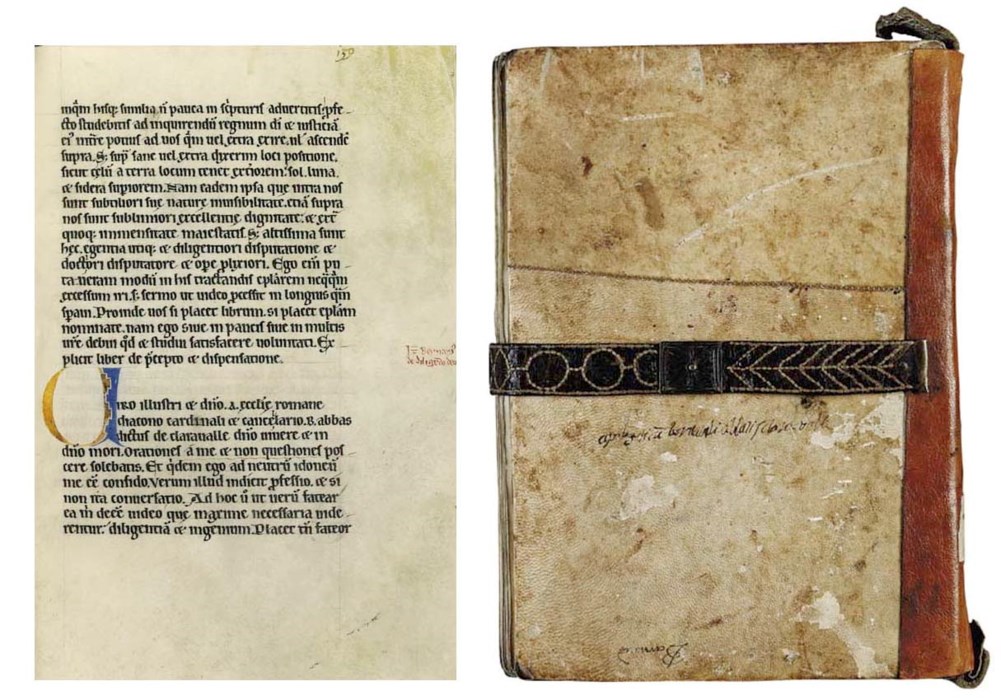 150
inq̄m hisq; similia ñ pauca in sc̄pturis aduertitis: ꝓfe
cto studebitis ad inquirendū regnum di̅ & iusticiā
ei' int̄re potius ad uos q̄m uel extra exire. ul' ascendē
supra. S; sup̄ sane uel extra dixerim loci positione.
sicut celū a terra locum tenet exteriorem: sol. luna.
& sidera supiorem. Nam eadem ipsa que intra nos
sunt subtiliori sue nature inuisibilitate. etiā supra
nos sunt sublimiori excellentie dignitate: & ext̄
quoq; immensitate maiestatis. S; altissima sunt
hec. egentia utiq; & diligentiori disputatione &
doctiori disputatore. & ope plixiori. Ego eni̅ pu
taueram modū in his tractandis eplārem neq̄q̄m
excessum iri. s; sermo ut uideo ꝓcessit in longius q̄m
spaui. Proinde uos si placet librum. si placet eplām
nominate. nam ego siue in paucis siue in multis
ur̄e debui q̄d & studui satisfacere uoluntati. Ex
plicit liber de p̄cepto & dispensatione.
UIRO illustri & dn̄o. a. ecclie romane
diacono cardinali & cancelario. B. abbas
dictus de claraualle dn̄o uiuere & in
dn̄o mori. Orationes a me & non questiones pos
cere solebatis. Et q̄dem ego ad neutrū idoneū
me eē confido. Verum illud indicit ꝓfessio. & si
non ita conuersatio. Ad hoc u̅ ut uerū fatear
ea m̄ deeē uideo que maxime necessaria uide
rentur: diligentiā & ingenium. Placet tn̄ fateor